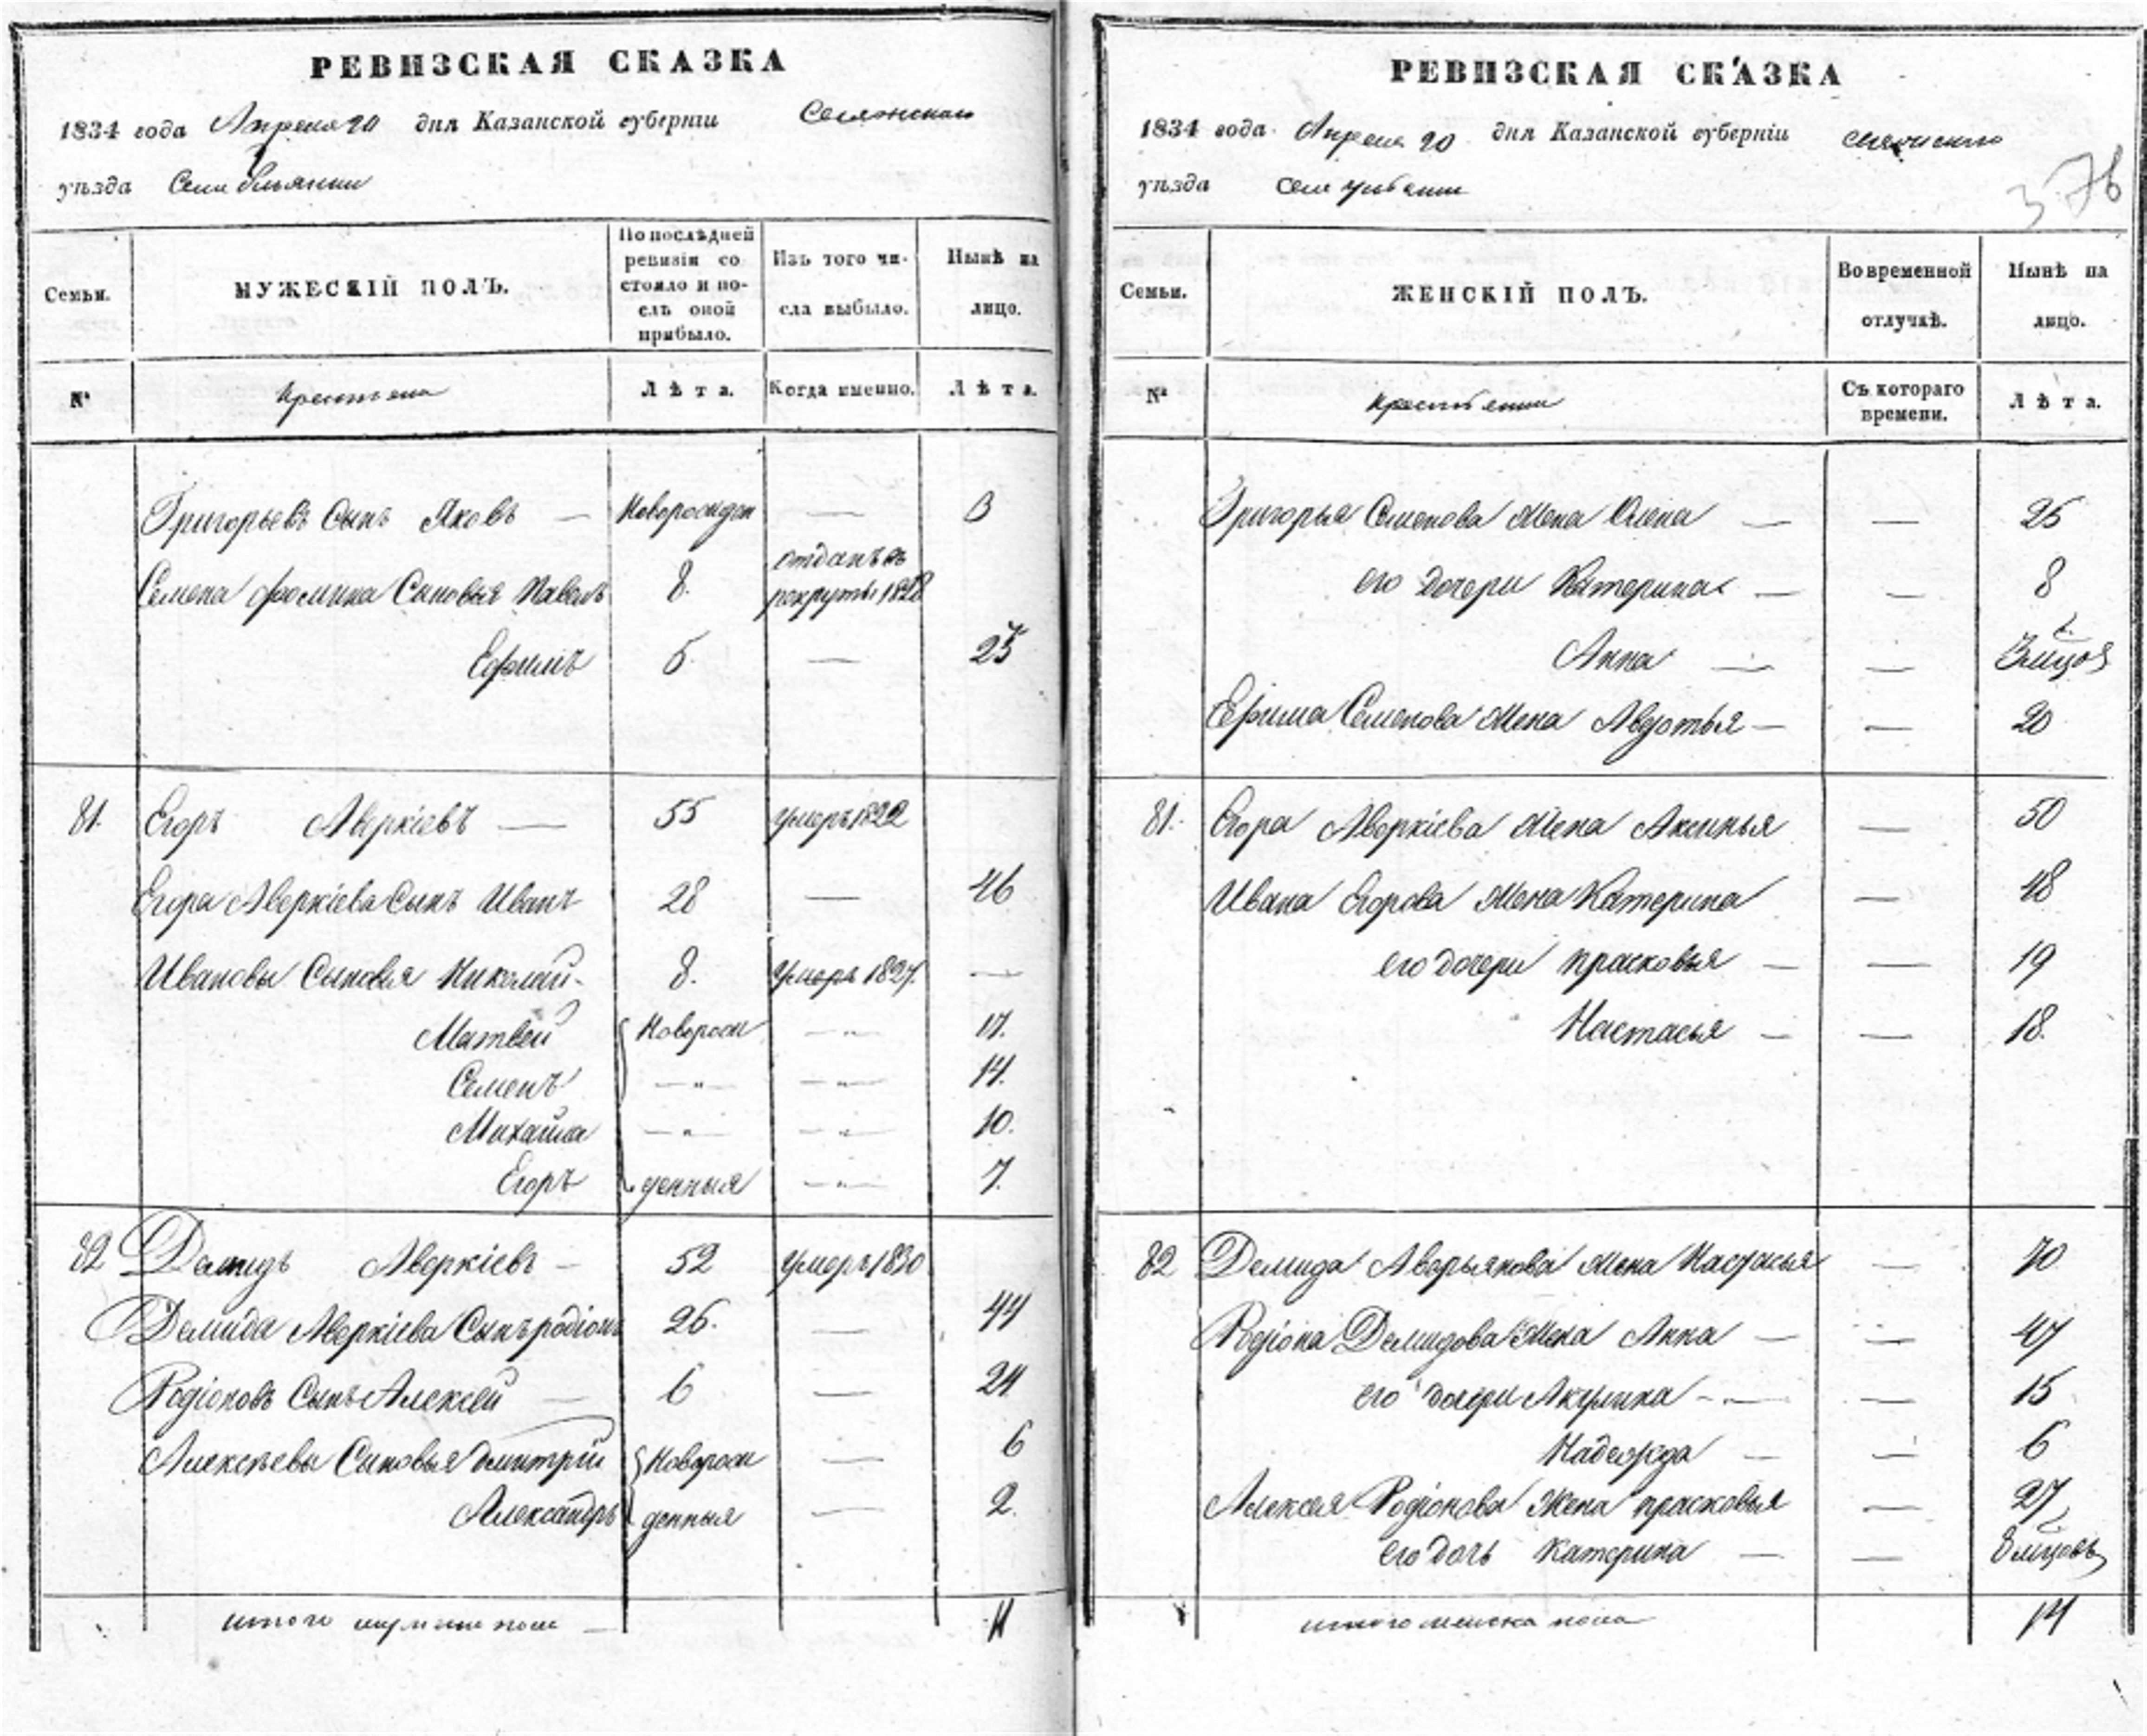 РЕВИЗСКАЯ СКАЗКА
1834 года Апреля 20 дня Казанской губерніи
уѣзда Села
Семьи.
МУЖЕСКІЙ ПОЛЪ.
По послѣдней ревизіи состояло и послѣ оной прибыло.
Изъ того числа выбыло.
Нынѣ на лицо.
№
Крестьяна
Лѣта.
Когда именно.
Лѣта.
Григорьевъ Сынъ Яковъ — Новорожден — 3
Семена Фомина Сыновья Павелъ 8. отданъ въ рекруты 1828
Ефимъ 6. — 25
81. Егоръ Аверкіевъ — 55 умеръ 1822
Егора Аверкіева Сынъ Иванъ 28 — 46
Ивановы Сыновья Николай - 8. умеръ 1827. —
Матвей Новорож — 17.
Семенъ — " — — " — 14.
Михайла — " — — " — 10.
Егоръ денныя — " — 7.
82 Демидъ Аверкіевъ — 52 умеръ 1830
Демида Аверкіева Сынъ родіонъ 26. — 44
Родіоновъ Сынъ Алексей — 6 — 24
Алексѣевы Сыновья Дмитрій Новорож — 6
Александръ денныя — 2.
итого муж пола — 11
РЕВИЗСКАЯ СКАЗКА
1834 года Апреля 20 дня Казанской губерніи
уѣзда Села
376
Семьи.
ЖЕНСКІЙ ПОЛЪ.
Во временной отлучкѣ.
Нынѣ на лицо.
№
Съ котораго времени.
Лѣта.
Григорья Семенова Жена Олена — — 25
его дочери Катерина — — 8
Анна — — 3 мцов
Ефима Семенова Жена Авдотья — — 20
81. Егора Аверкіева Жена Аксинья — 50
Ивана Егорова Жена Катерина — 48
его дочери прасковья — — 19
Настасья — — 18.
82 Демида Аверьянова Жена Настасья — 70
Родіона Демидова Жена Анна — — 47
его дочери Акулина — — 15
Надежда — — 6
Алексея Родіонова Жена прасковья — 27
его дочь Катерина — — 8 мцовъ
итого женска пола 14